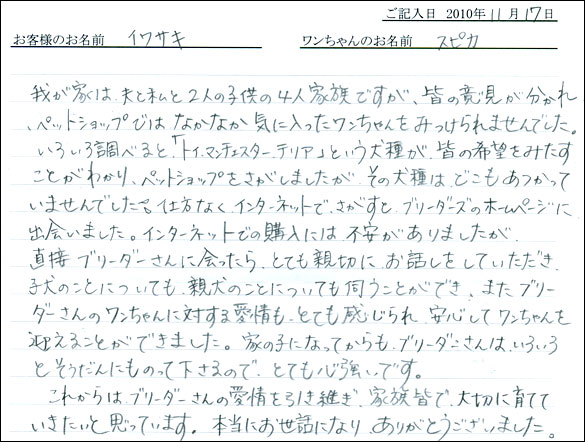 ご記入日 2010年11月17日
お客様のお名前 イワサキ ワンちゃんのお名前 スピカ
我が家は、夫と私と2人の子供の4人家族ですが、皆の意見が分かれ
、ペットショップではなかなか気に入ったワンちゃんをみつけられませんでした。
いろいろ調べると、「トイ・マンチェスターテリア」という犬種が、皆の希望をみたす
ことがわかり、ペットショップをさがしましたが、その犬種は、どこもあつかって
いませんでした。仕方なくインターネットで、さがすと、ブリーダーズのホームページに
出会いました。インターネットでの購入には不安がありましたが、
直接ブリーダーさんに会ったら、とても親切に、お話しをしていただき、
子犬のことについても、親犬のことについても伺うことができ、またブリー
ダーさんのワンちゃんに対する愛情も、とても感じられ、安心してワンちゃんを
迎えることができました。家の子になってからも、ブリーダーさんは、いろいろ
とそうだんにものって下さるので、とても心強いです。
これからは、ブリーダーさんの愛情を引き継ぎ、家族皆で、大切に育てて
いきたいと思っています。本当にお世話になりありがとうございました。